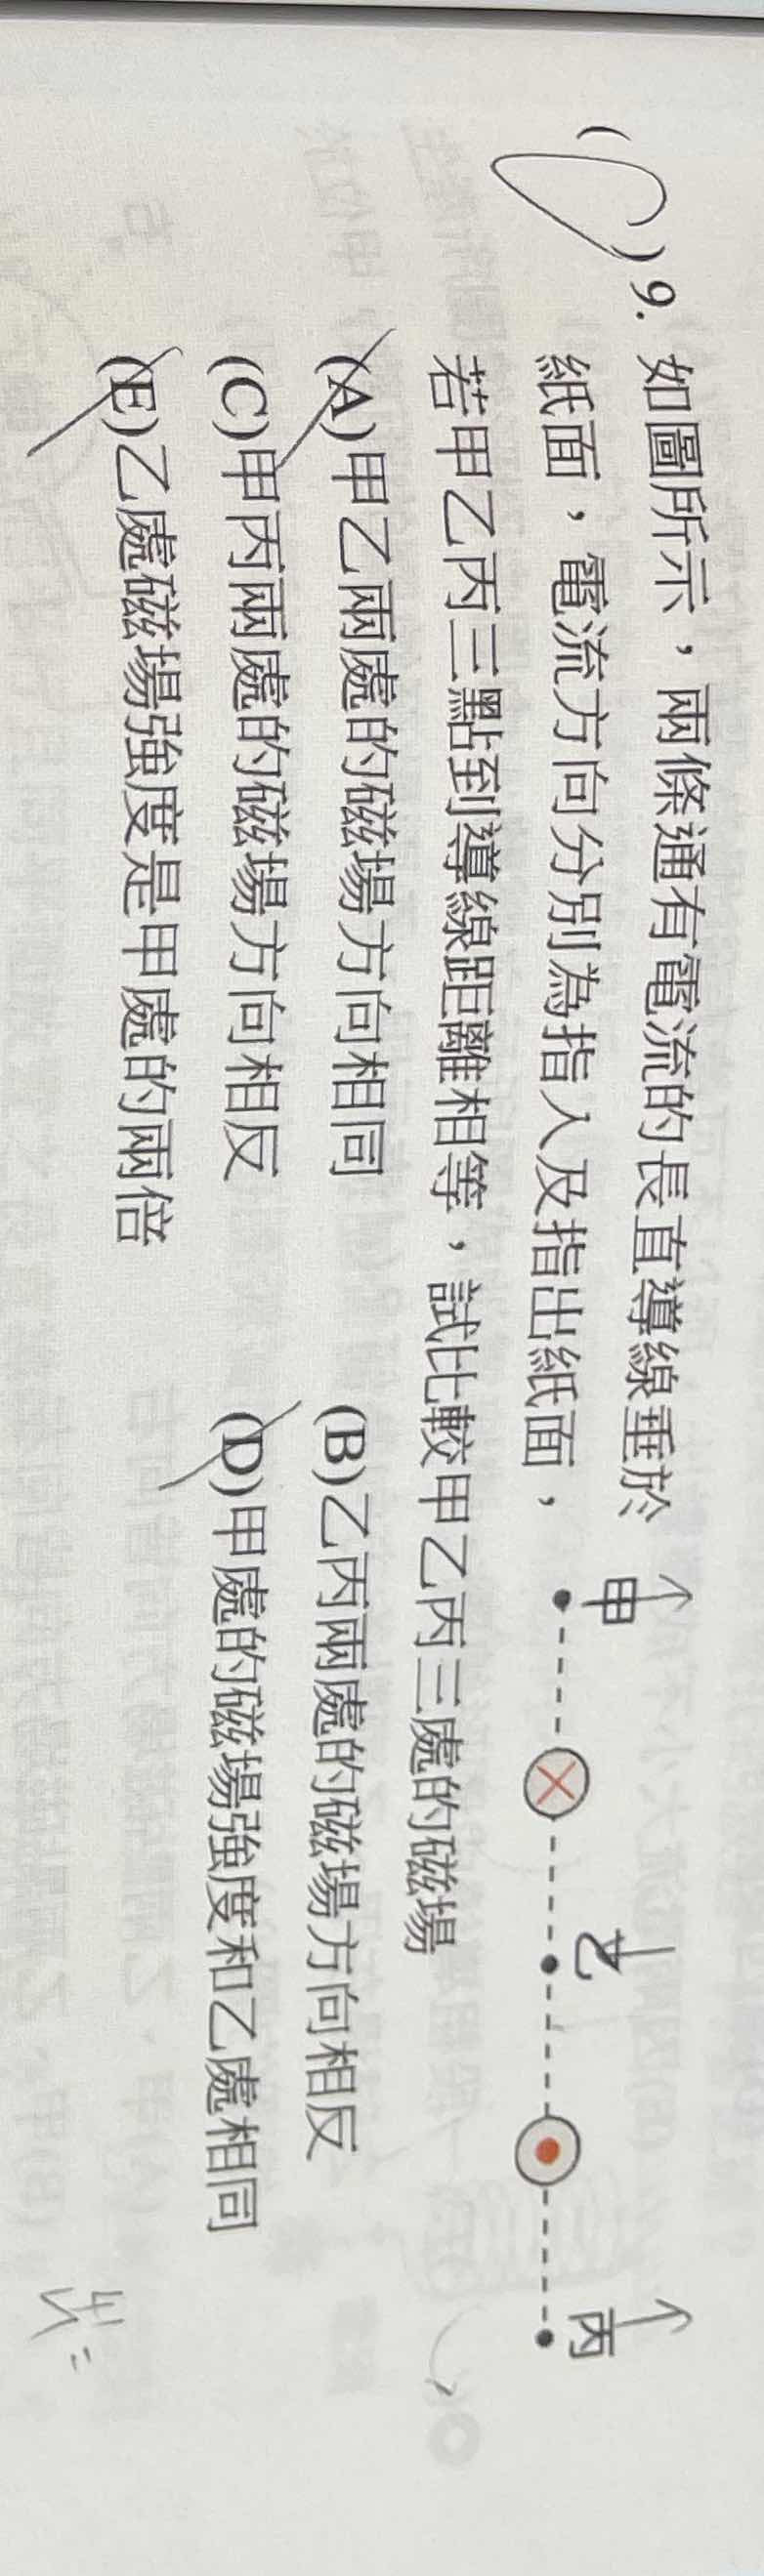 ( )9. 如圖所示，兩條通有電流的長直導線垂於
紙面，電流方向分別為指入及指出紙面，
若甲乙丙三點到導線距離相等，試比較甲乙丙三處的磁場
甲 乙 丙
(A)甲乙兩處的磁場方向相同 (B)乙丙兩處的磁場方向相反
(C)甲丙兩處的磁場方向相反 (D)甲處的磁場強度和乙處相同
(E)乙處磁場強度是甲處的兩倍